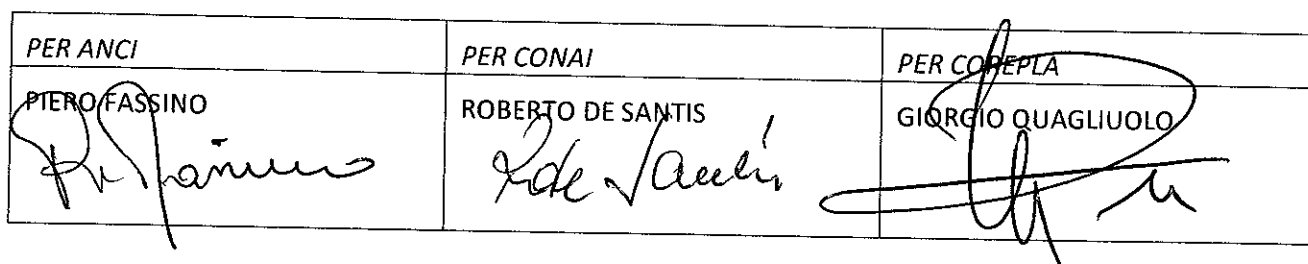 PER ANCI
PER CONAI
PER COREPLA
PIERO FASSINO
ROBERTO DE SANTIS
GIORGIO QUAGLIUOLO